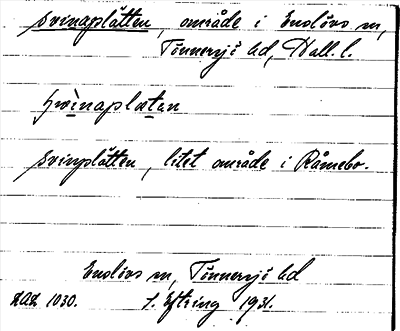 Svinaplätten, område i Enslövs sn,
Tönnersjö hd, Hall. l.
svìnaplæten
Svinplätten, litet område i Råmebo.
Enslövs sn, Tönnersjö hd
1030. J. Eftring 1931.